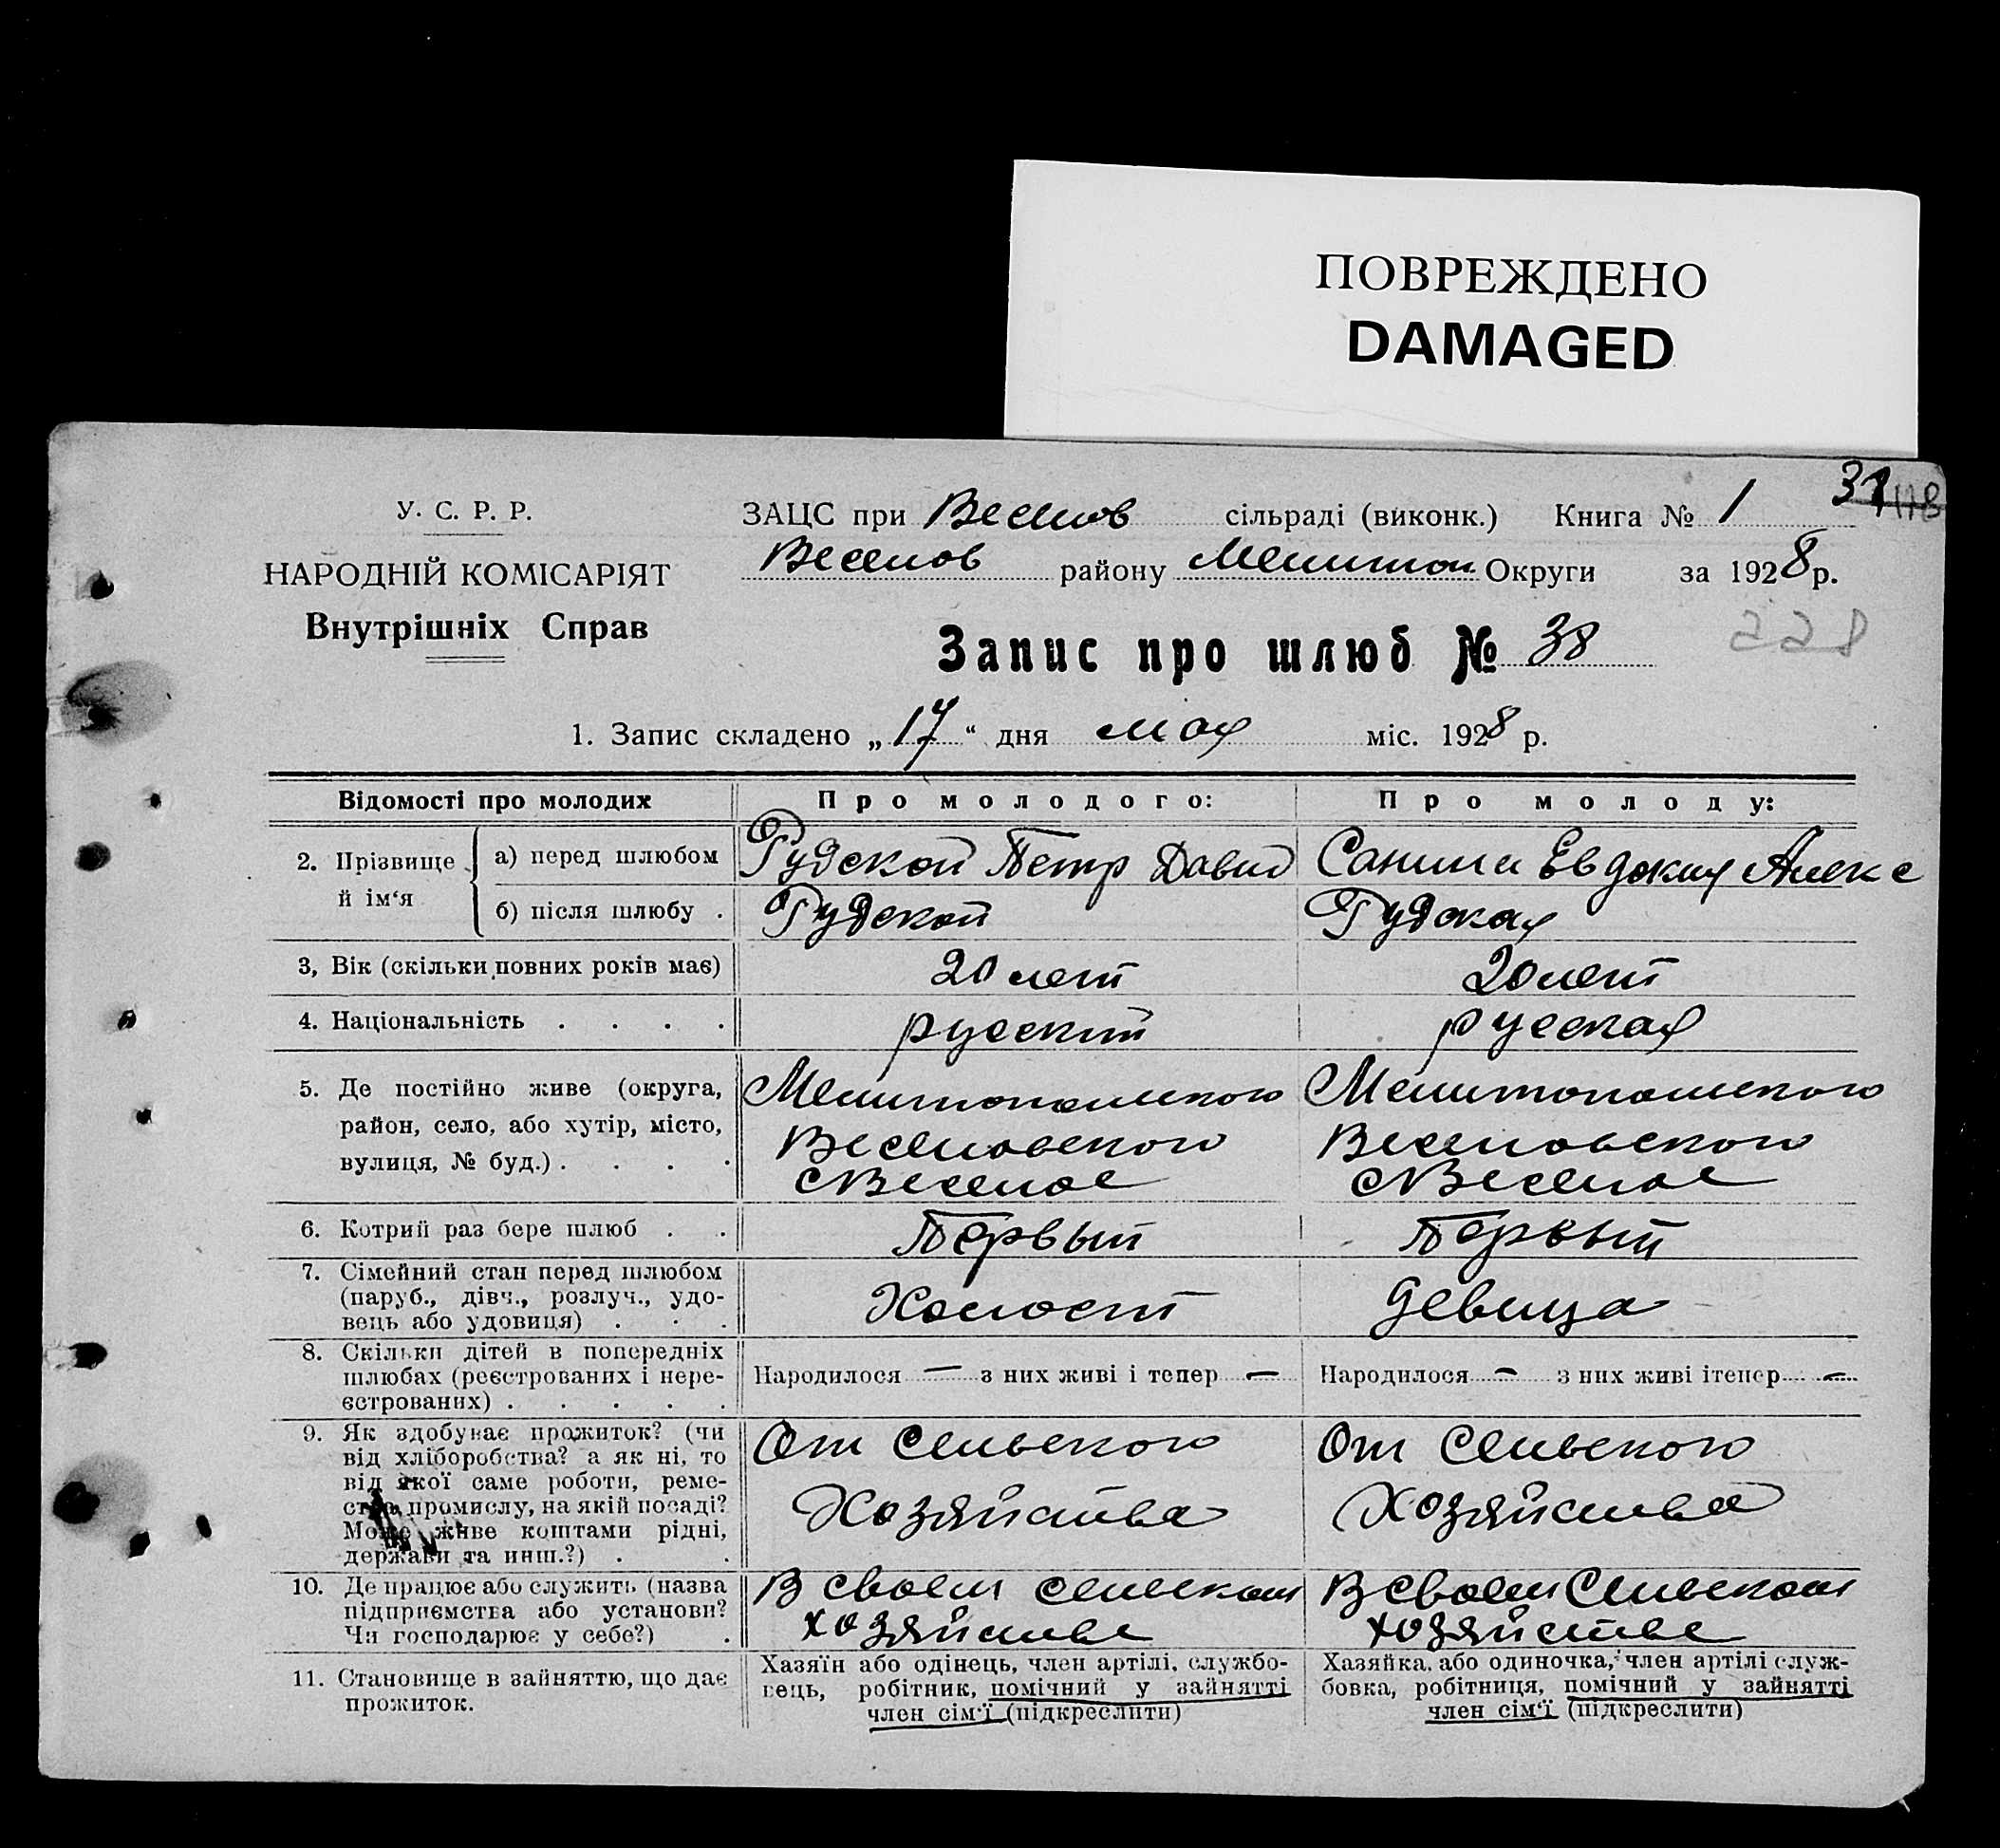 ПОВРЕЖДЕНО
DAMAGED
У. С. Р. Р.
НАРОДНІЙ КОМІСАРІЯТ
Внутрішніх Справ
ЗАЦС при Веселов сільраді (виконк.) Книга № 1
31
Веселов району Мелитоп. Округи за 1928 р.
Запис про шлюб № 38
228
1. Запис складено „17“ дня мая міс. 1928 р.
Відомості про молодих
Про молодого:
Про молоду:
2. Прізвище й ім‘я
а) перед шлюбом
Рудской Петр Давид
Санина Евдокия Алекс
б) після шлюбу .
Рудской
Рудская
3, Вік (скільки повних років має)
20 лет
20 лет
4. Національність . . . .
русский
русская
5. Де постійно живе (округа,
район, село, або хутір, місто,
вулиця, № буд.) . . . .
Мелитопольского
Веселовского
с Веселое
Мелитопольского
Веселовского
с Веселое
6. Котрий раз бере шлюб . .
Первый
Первый
7. Сімейний стан перед шлюбом
(паруб., дівч., розлуч., удо-
вець або удовиця) . . .
Холост
девица
8. Скільки дітей в попередніх
шлюбах (реєстрованих і нере-
єстрованих) . . . . .
Народилося — з них живі і тепер —
Народилося — з них живі ітепер —
9. Як здобуває прожиток? (чи
від хліборобства? а як ні, то
від якої саме роботи, реме-
ства, промислу, на якій посаді?
Може живе коштами рідні,
держави та инш.?) . .
От сельского
Хозяйства
От сельского
Хозяйства
10. Де працює або служить (назва
підприємства або установи?
Чи господарює у себе?) .
В своем сельском
хозяйстве
В своем сельском
хозяйстве
11. Становище в зайняттю, що дає
прожиток.
Хазяїн або одінець, член артілі, службо-
вець, робітник, помічний у зайнятті
член сім‘ї (підкреслити)
Хазяйка, або одиночка, член артілі служ-
бовка, робітниця, помічний у зайнятті
член сім‘ї (підкреслити)